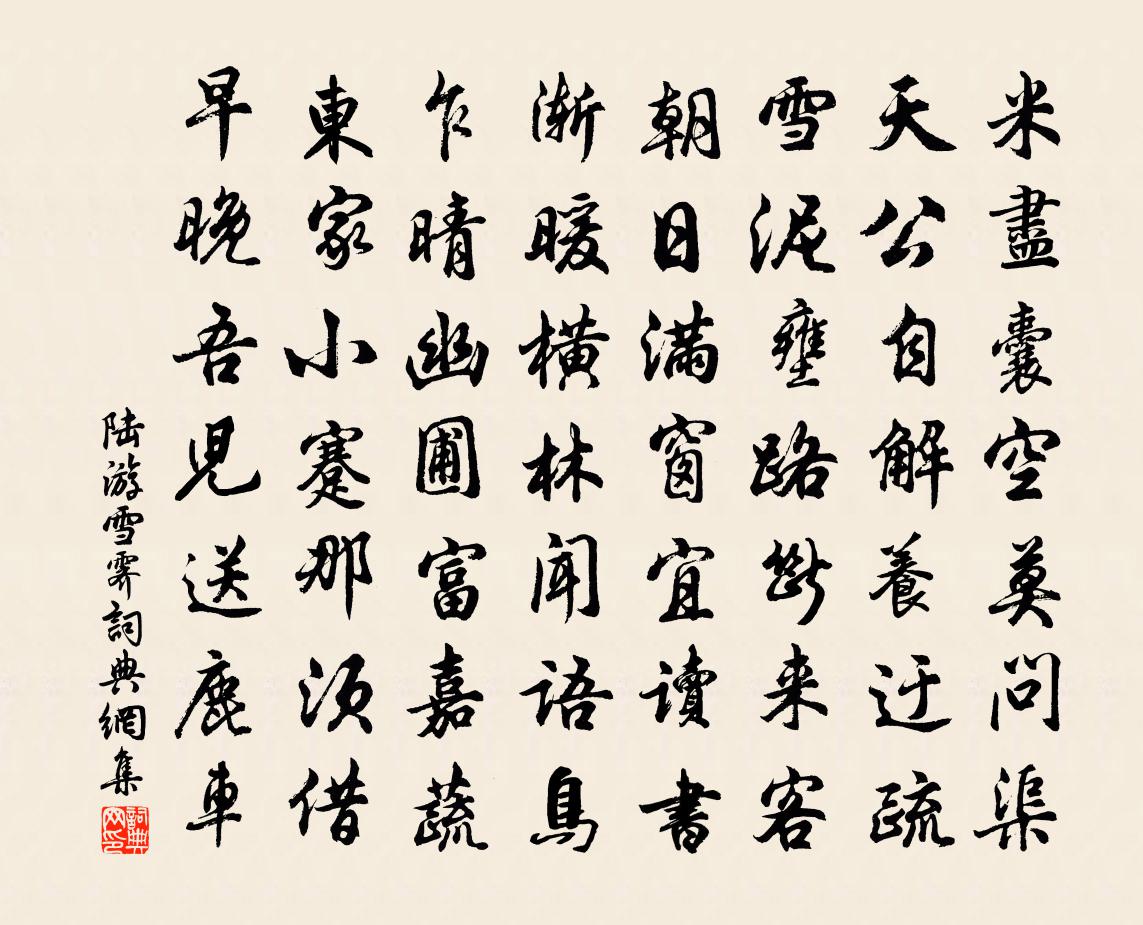 米盡囊空莫問渠
天公自解養迂疏
雪泥壅路斷来客
朝日滿窗宜讀書
漸暖橫林聞語鳥
乍晴幽圃富嘉蔬
東家小蹇那須借
早晚吾兒送鹿車
陆游雪霁詞典網集
詞典网印